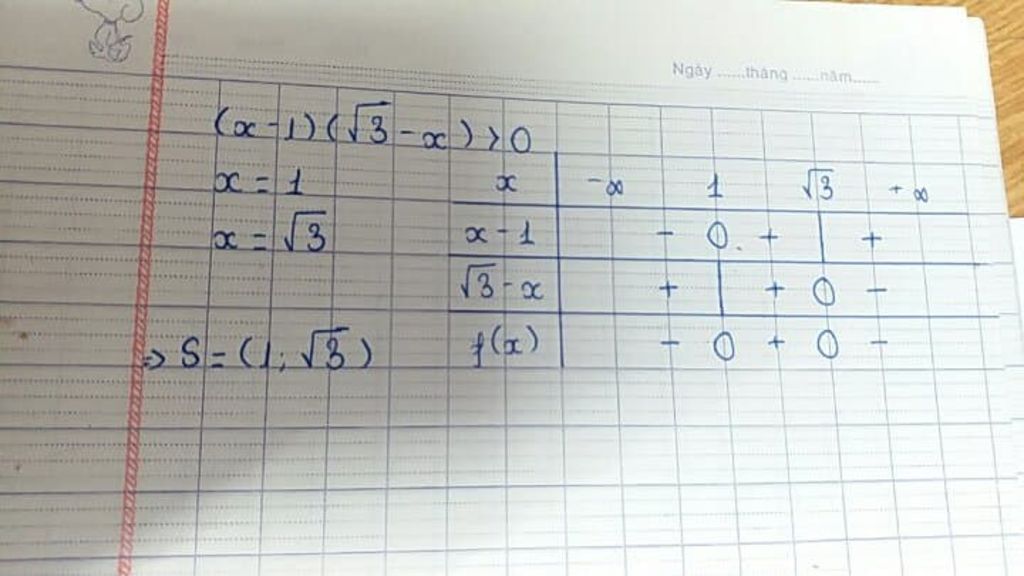 Ngày ......tháng ......năm......
(x-1)(√3-x) > 0
x = 1
x = √3
x -∞ 1 √3 +∞
x-1 - 0 + | +
√3-x + | + 0 -
f(x) - 0 + 0 -
=> S = (1; √3)